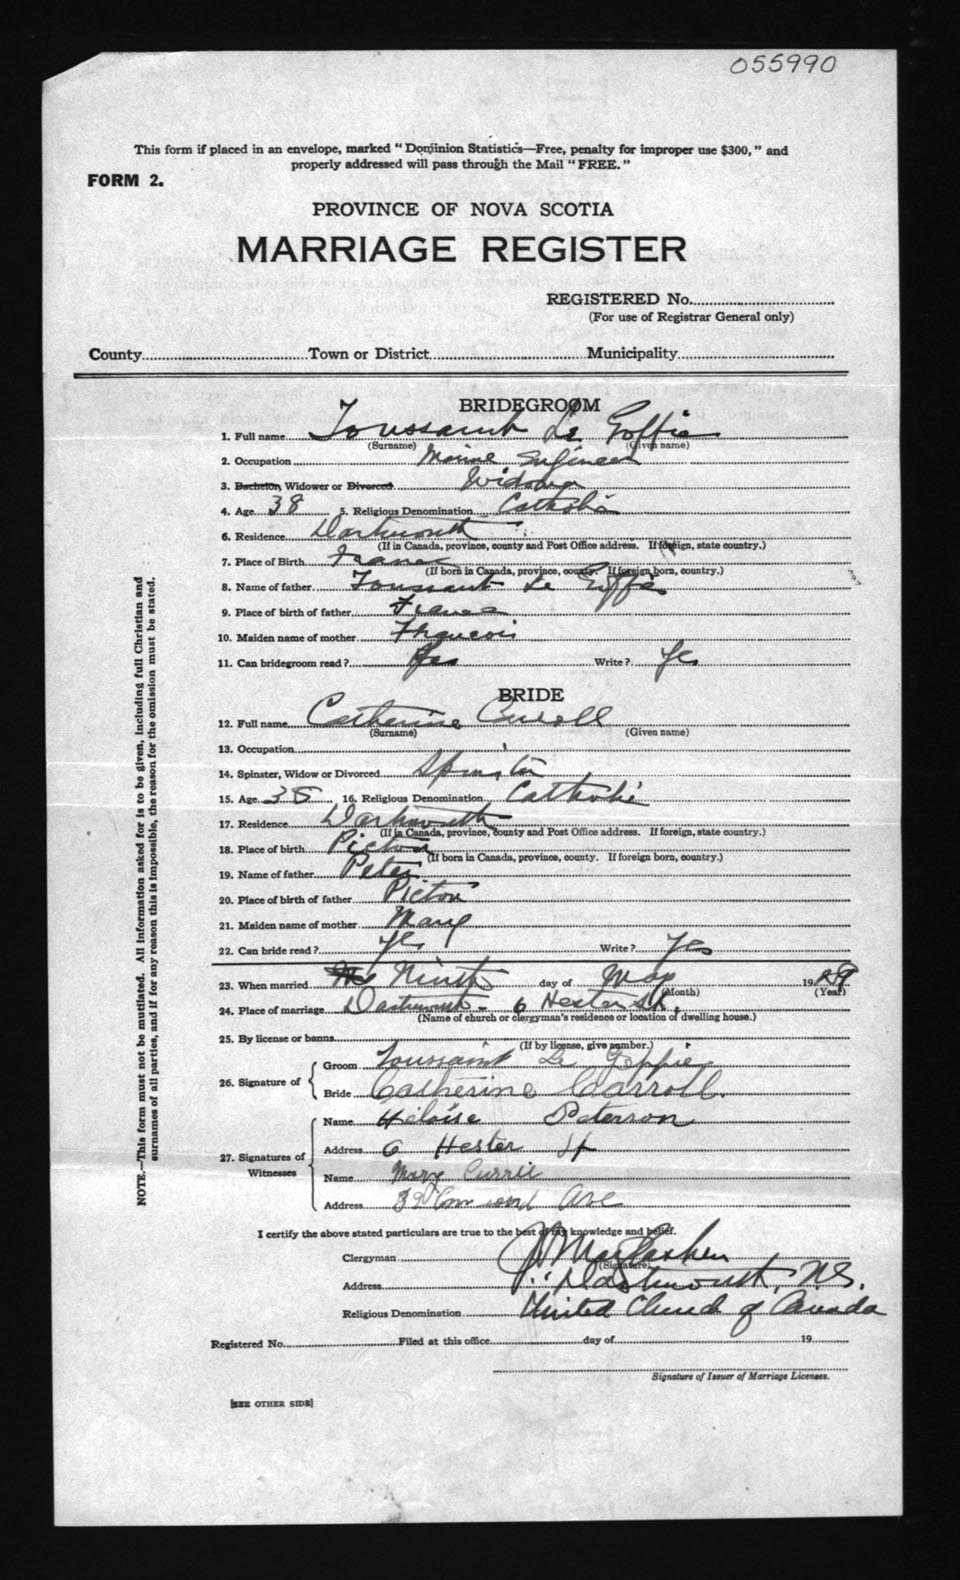 055990
This form if placed in an envelope, marked "Dominion Statistics—Free, penalty for improper use $300," and
properly addressed will pass through the Mail "FREE."
FORM 2.
PROVINCE OF NOVA SCOTIA
MARRIAGE REGISTER
REGISTERED No.
(For use of Registrar General only)
County Town or District Municipality
BRIDEGROOM
1. Full name Toussaint Le Goffic
(Surname) (Given name)
2. Occupation Marine Engineer
3. Bachelor, Widower or Divorced Widower
4. Age 38 5. Religious Denomination Catholic
6. Residence Dartmouth
(If in Canada, province, county and Post Office address. If foreign, state country.)
7. Place of Birth France
(If born in Canada, province, county. If foreign born, country.)
8. Name of father Toussant Le Goffic
9. Place of birth of father France
10. Maiden name of mother
11. Can bridegroom read? Yes Write? Yes
BRIDE
12. Full name Catherine Carroll
(Surname) (Given name)
13. Occupation
14. Spinster, Widow or Divorced Spinster
15. Age 16. Religious Denomination Catholic
17. Residence Dartmouth
(If in Canada, province, county and Post Office address. If foreign, state country.)
18. Place of birth Pictou
(If born in Canada, province, county. If foreign born, country.)
19. Name of father Peter
20. Place of birth of father Pictou
21. Maiden name of mother Mary
22. Can bride read? Yes Write? Yes
23. When married Ninth day of May 1929
(Month) (Year)
24. Place of marriage Dartmouth - 6 Hester St.
(Name of church or clergyman's residence or location of dwelling house.)
25. By license or banns
(If by license, give number.)
26. Signature of
Groom Toussaint Le Goffic
Bride Catherine Carroll.
27. Signatures of Witnesses
Name Heloise Peterson
Address 6 Hester St
Name Mary Currie
Address Ave
I certify the above stated particulars are true to the best of my knowledge and belief.
Clergyman
(Signature)
Address Dartmouth, N.S.
Religious Denomination United Church of Canada
Registered No. Filed at this office day of 19
Signature of Issuer of Marriage Licenses.
[SEE OTHER SIDE]
NOTE.—This form must not be mutilated. All information asked for is to be given, including full Christian and
surnames of all parties, and if for any reason this is impossible, the reason for the omission must be stated.